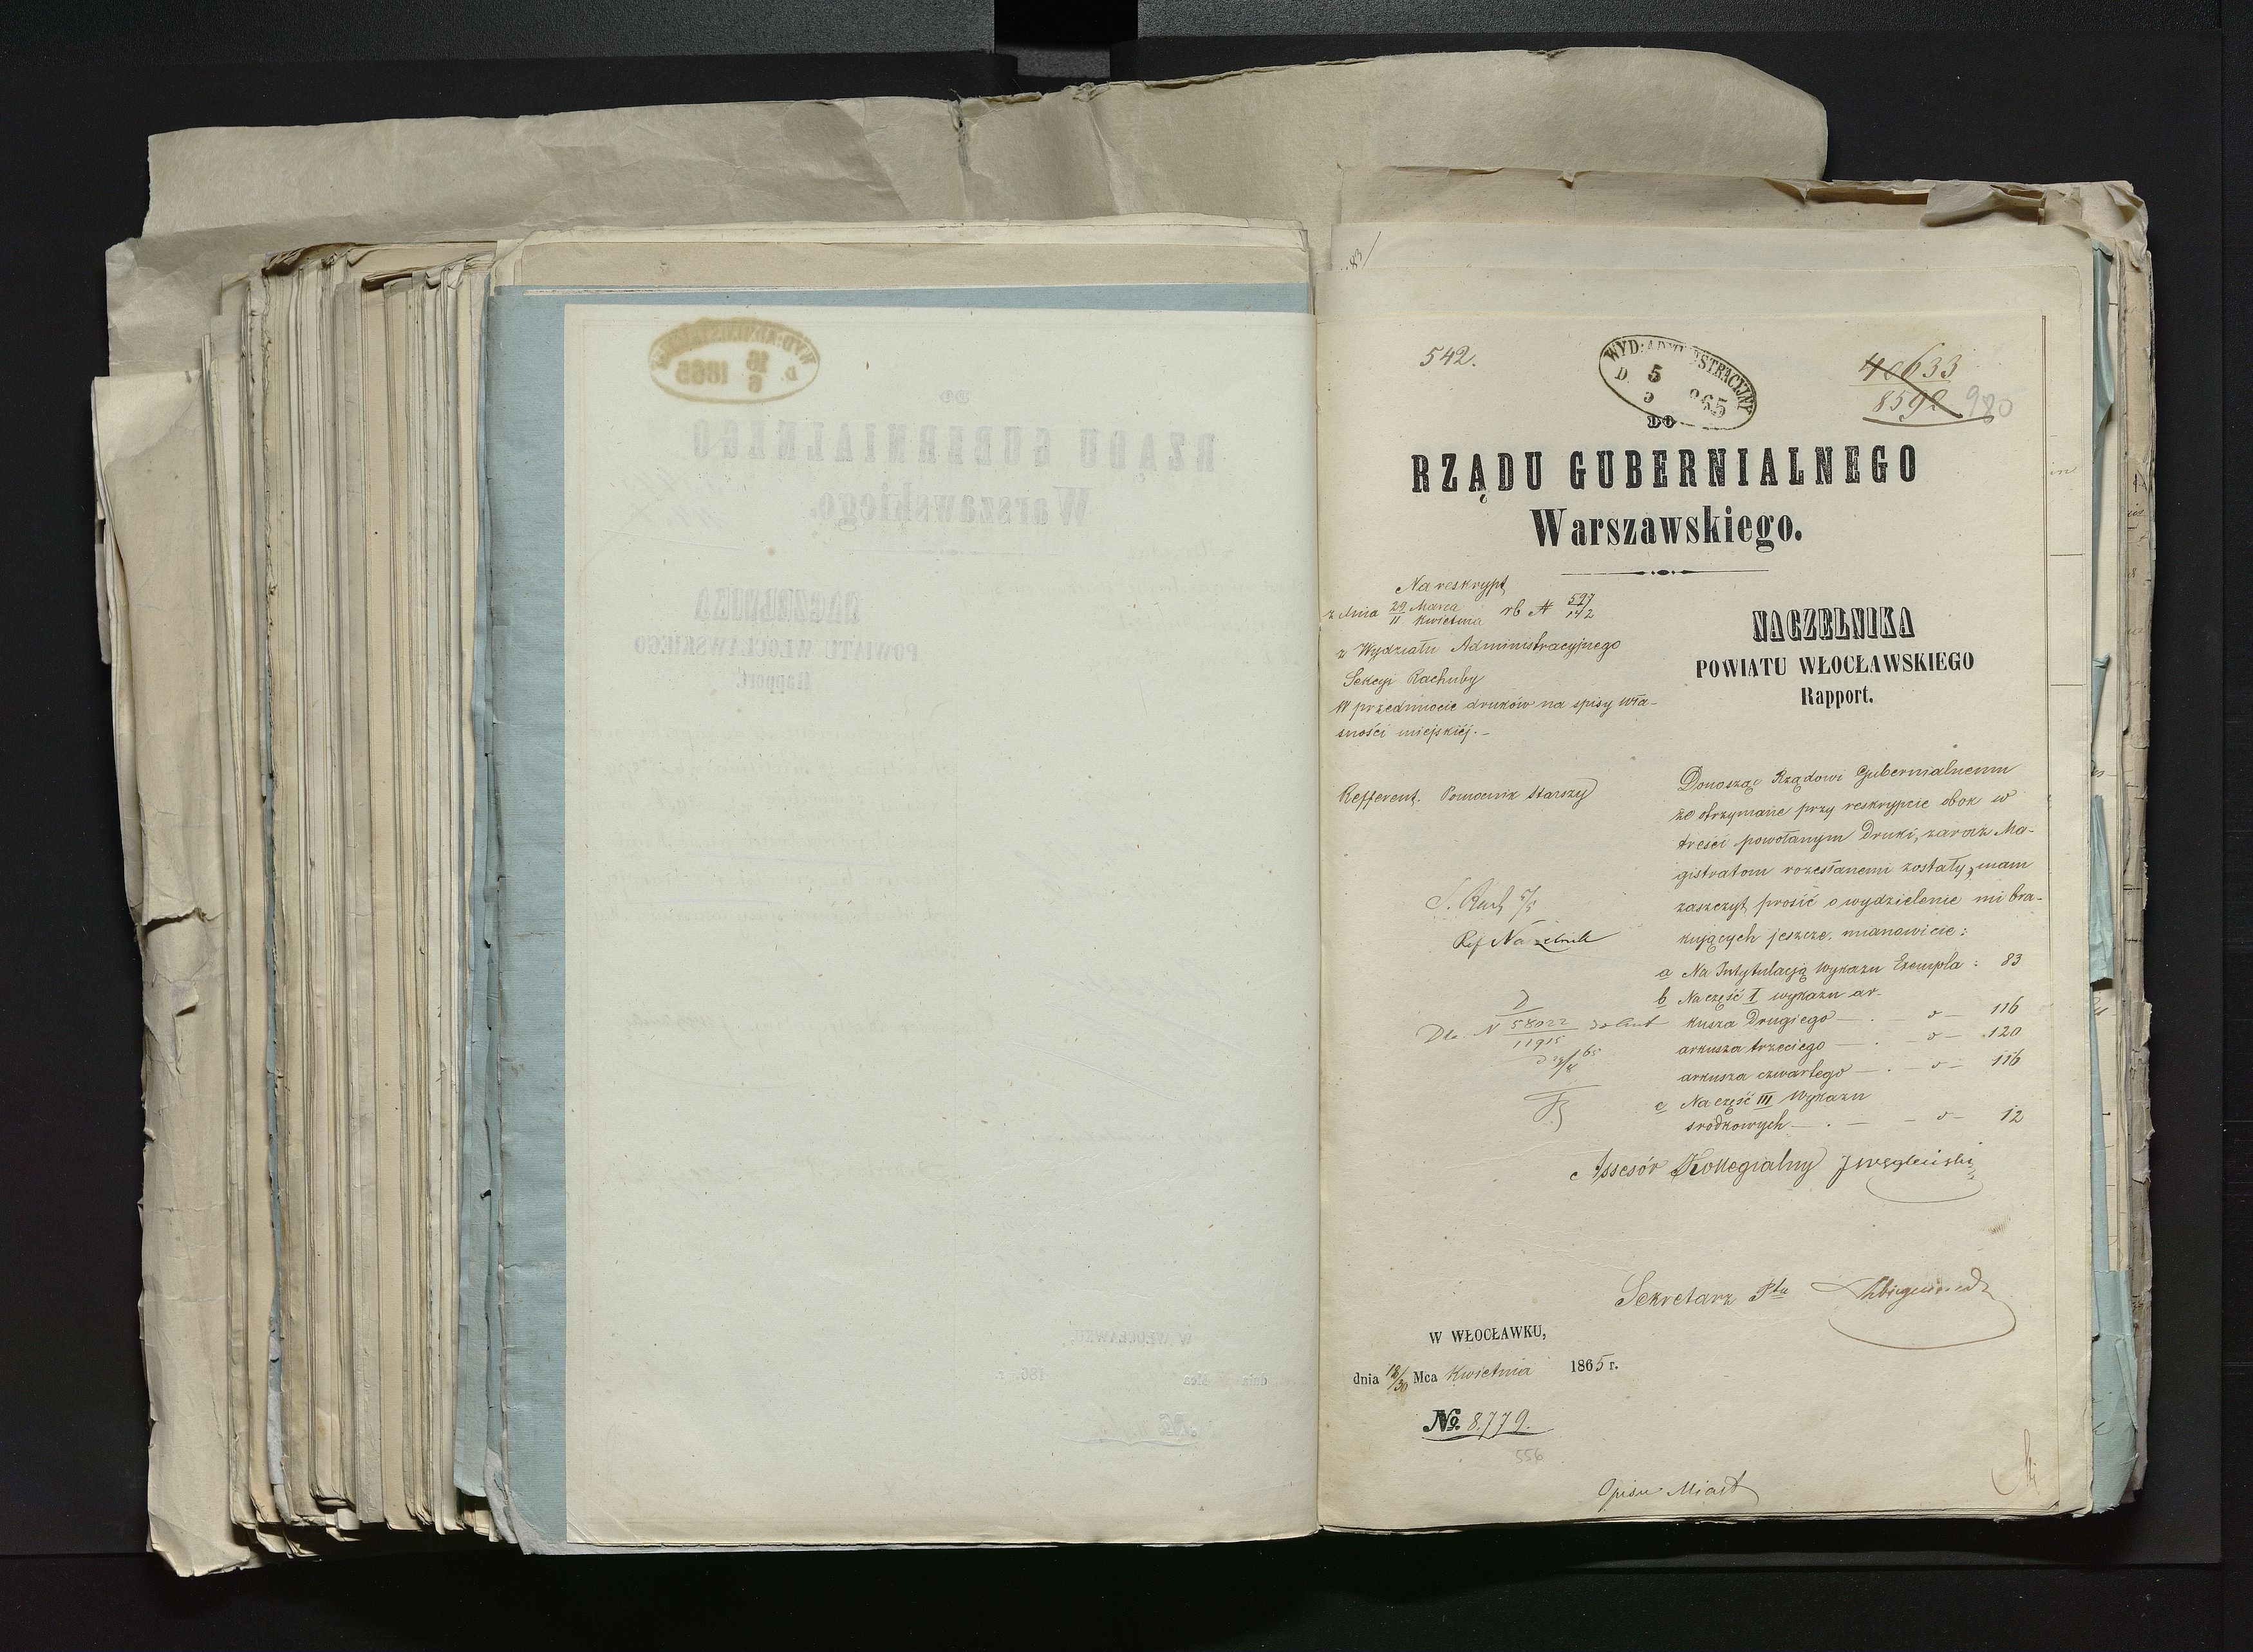 542.
WYD: ADMINISTRACYJNY
D 5 5 865
40633
8592
980
DO
RZĄDU GUBERNIALNEGO
Warszawskiego.
Na reskrypt
z dnia 29 Marca / 11 Kwietnia rb N
z Wydziału Administracyjnego
Sekcyi Rachuby
W przedmiocie druków na spisy wła-
sności miejskiéj.—
Refferent. Pomocnik Starszy
NACZELNIKA
POWIATU WŁOCŁAWSKIEGO
Rapport.
Donosząc Rządowi Gubernialnemu
że otrzymane przy reskrypcie obok w
treści powołanym Druki, zaraz Ma-
gistratom rozesłanemi zostały, mam
zaszczyt prosić o wydzielenie mi bra-
kujących jeszcze. mianowicie:
a Na Intytulacją wykazu Exempla: 83
b Na część I wykazu ar-
kusza Drugiego — . — o — 116
arkusza trzeciego — . — o — 120
arkusza czwartego — . — o — 116
c Na część III wykazu
srodkowych — . — — o — 12
S. Rach 5/5
Ref Na
N 58022
11915
Assesór Kollegialny J Węgleński
Sekretarz Ptu
W WŁOCŁAWKU,
dnia 18/30 Mca Kwietnia 1865 r.
No. 8,779.
556
Opisu Miast